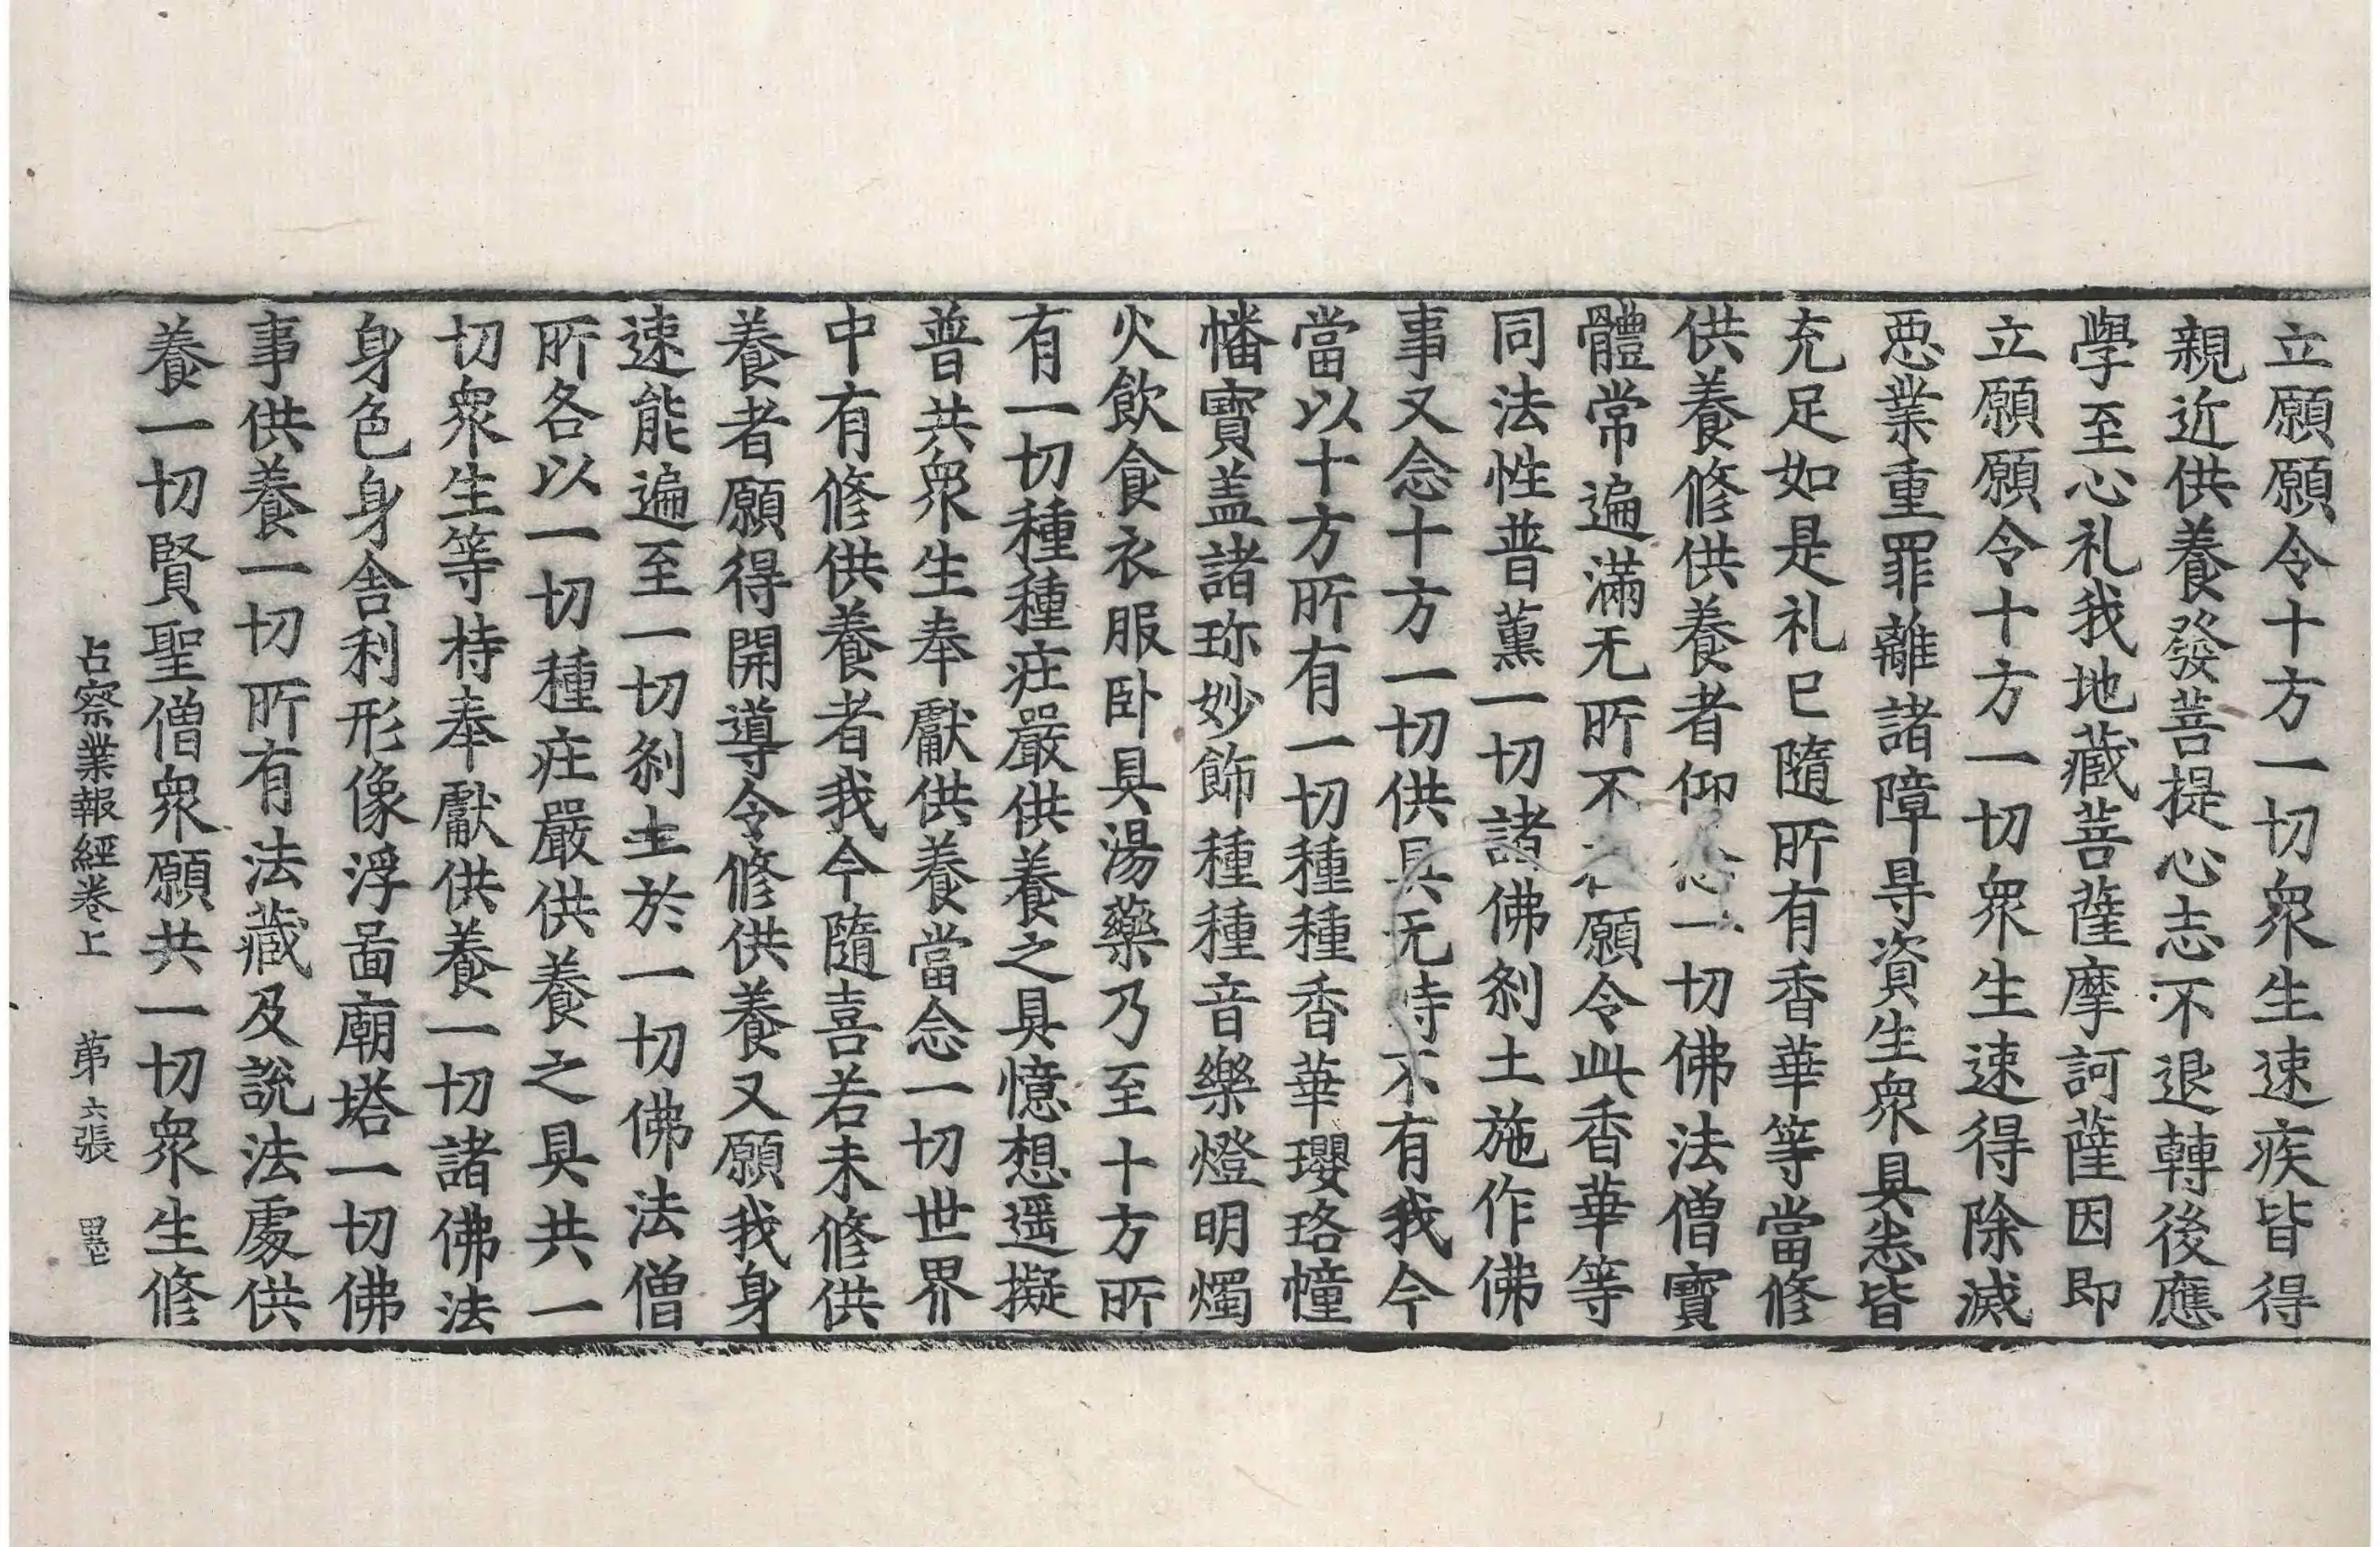 立願願令十方一切衆生速疾皆得
親近供養發菩提心志不退轉後應
學至心礼我地藏菩薩摩訶薩因即
立願願令十方一切衆生速得除滅
惡業重罪離諸障㝵資生衆具悉皆
充足如是礼已隨所有香華等當修
供養修供養者仰念一切佛法僧寶
體常遍滿无所不在願令此香華等
同法性普薰一切諸佛刹土施作佛
事又念十方一切供具无時不有我今
當以十方所有一切種種香華瓔珞幢
幡寶盖諸珎妙飾種種音樂燈明燭
火飲食衣服卧具湯藥乃至十方所
有一切種種莊嚴供養之具憶想遥擬
普共衆生奉獻供養當念一切世界
中有修供養者我今隨喜若未修供
養者願得開導令修供養又願我身
速能遍至一切刹土於一切佛法僧
所各以一切種莊嚴供養之具共一
切衆生等持奉獻供養一切諸佛法
身色身舍利形像浮啚廟塔一切佛
事供養一切所有法藏及說法處供
養一切賢聖僧衆願共一切衆生修
占察業報經卷上 苐六張